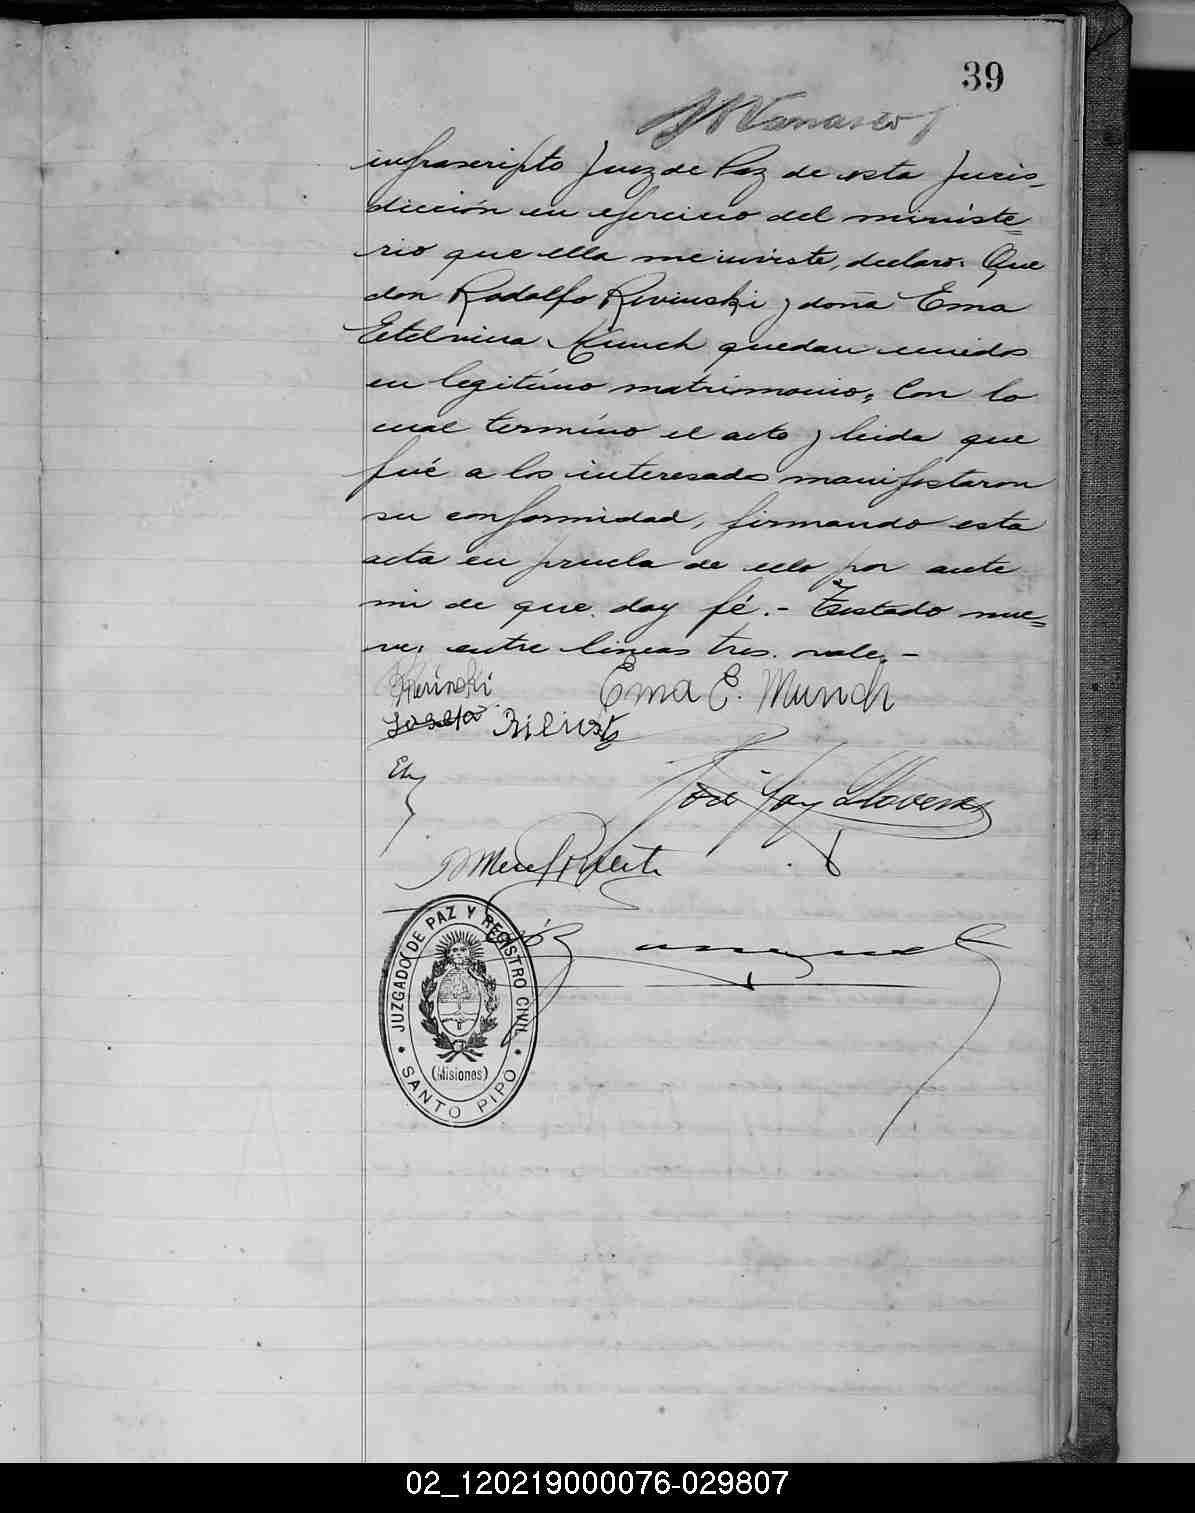 39
infrascripto Juez de Paz de esta Juris-
dicción en ejercicio del ministe=
rio que ella me inviste, declaro: Que
don Rodolfo Rivinski y doña Ema
Etelvina Münch quedan unidos
en legitimo matrimonio, Con lo
cual termino el acto y leida que
fué a los interesados manifestaron
su conformidad, firmando esta
acta en prueba de ello por ante
mi de que doy fé.- Testado nue=
ve, entre lineas tres. vale.-
Ema E. Munch
José Llovera
JUZGADO DE PAZ Y REGISTRO CIVIL
(Misiones)
SANTO PIPO
02_120219000076-029807